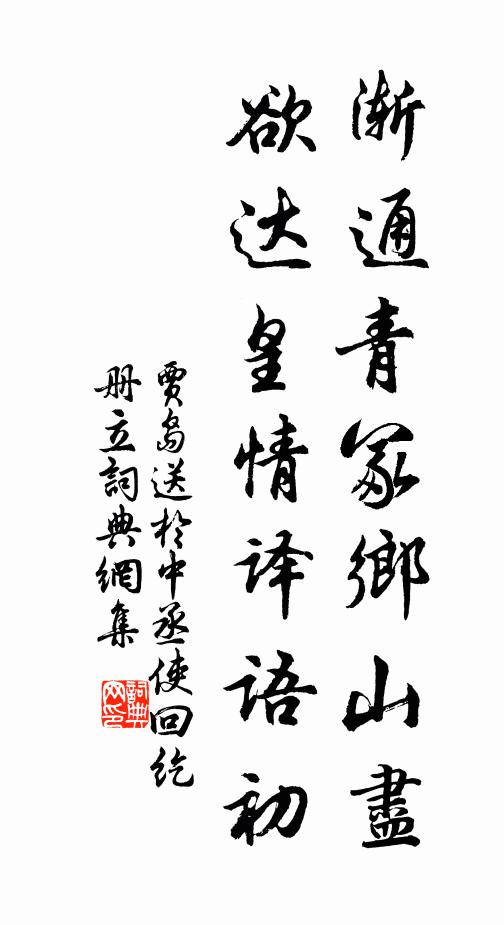 渐通青冢鄉山盡
欲达皇情译语初
賈島送於中丞使回紇
册立詞典網集
詞典
网印